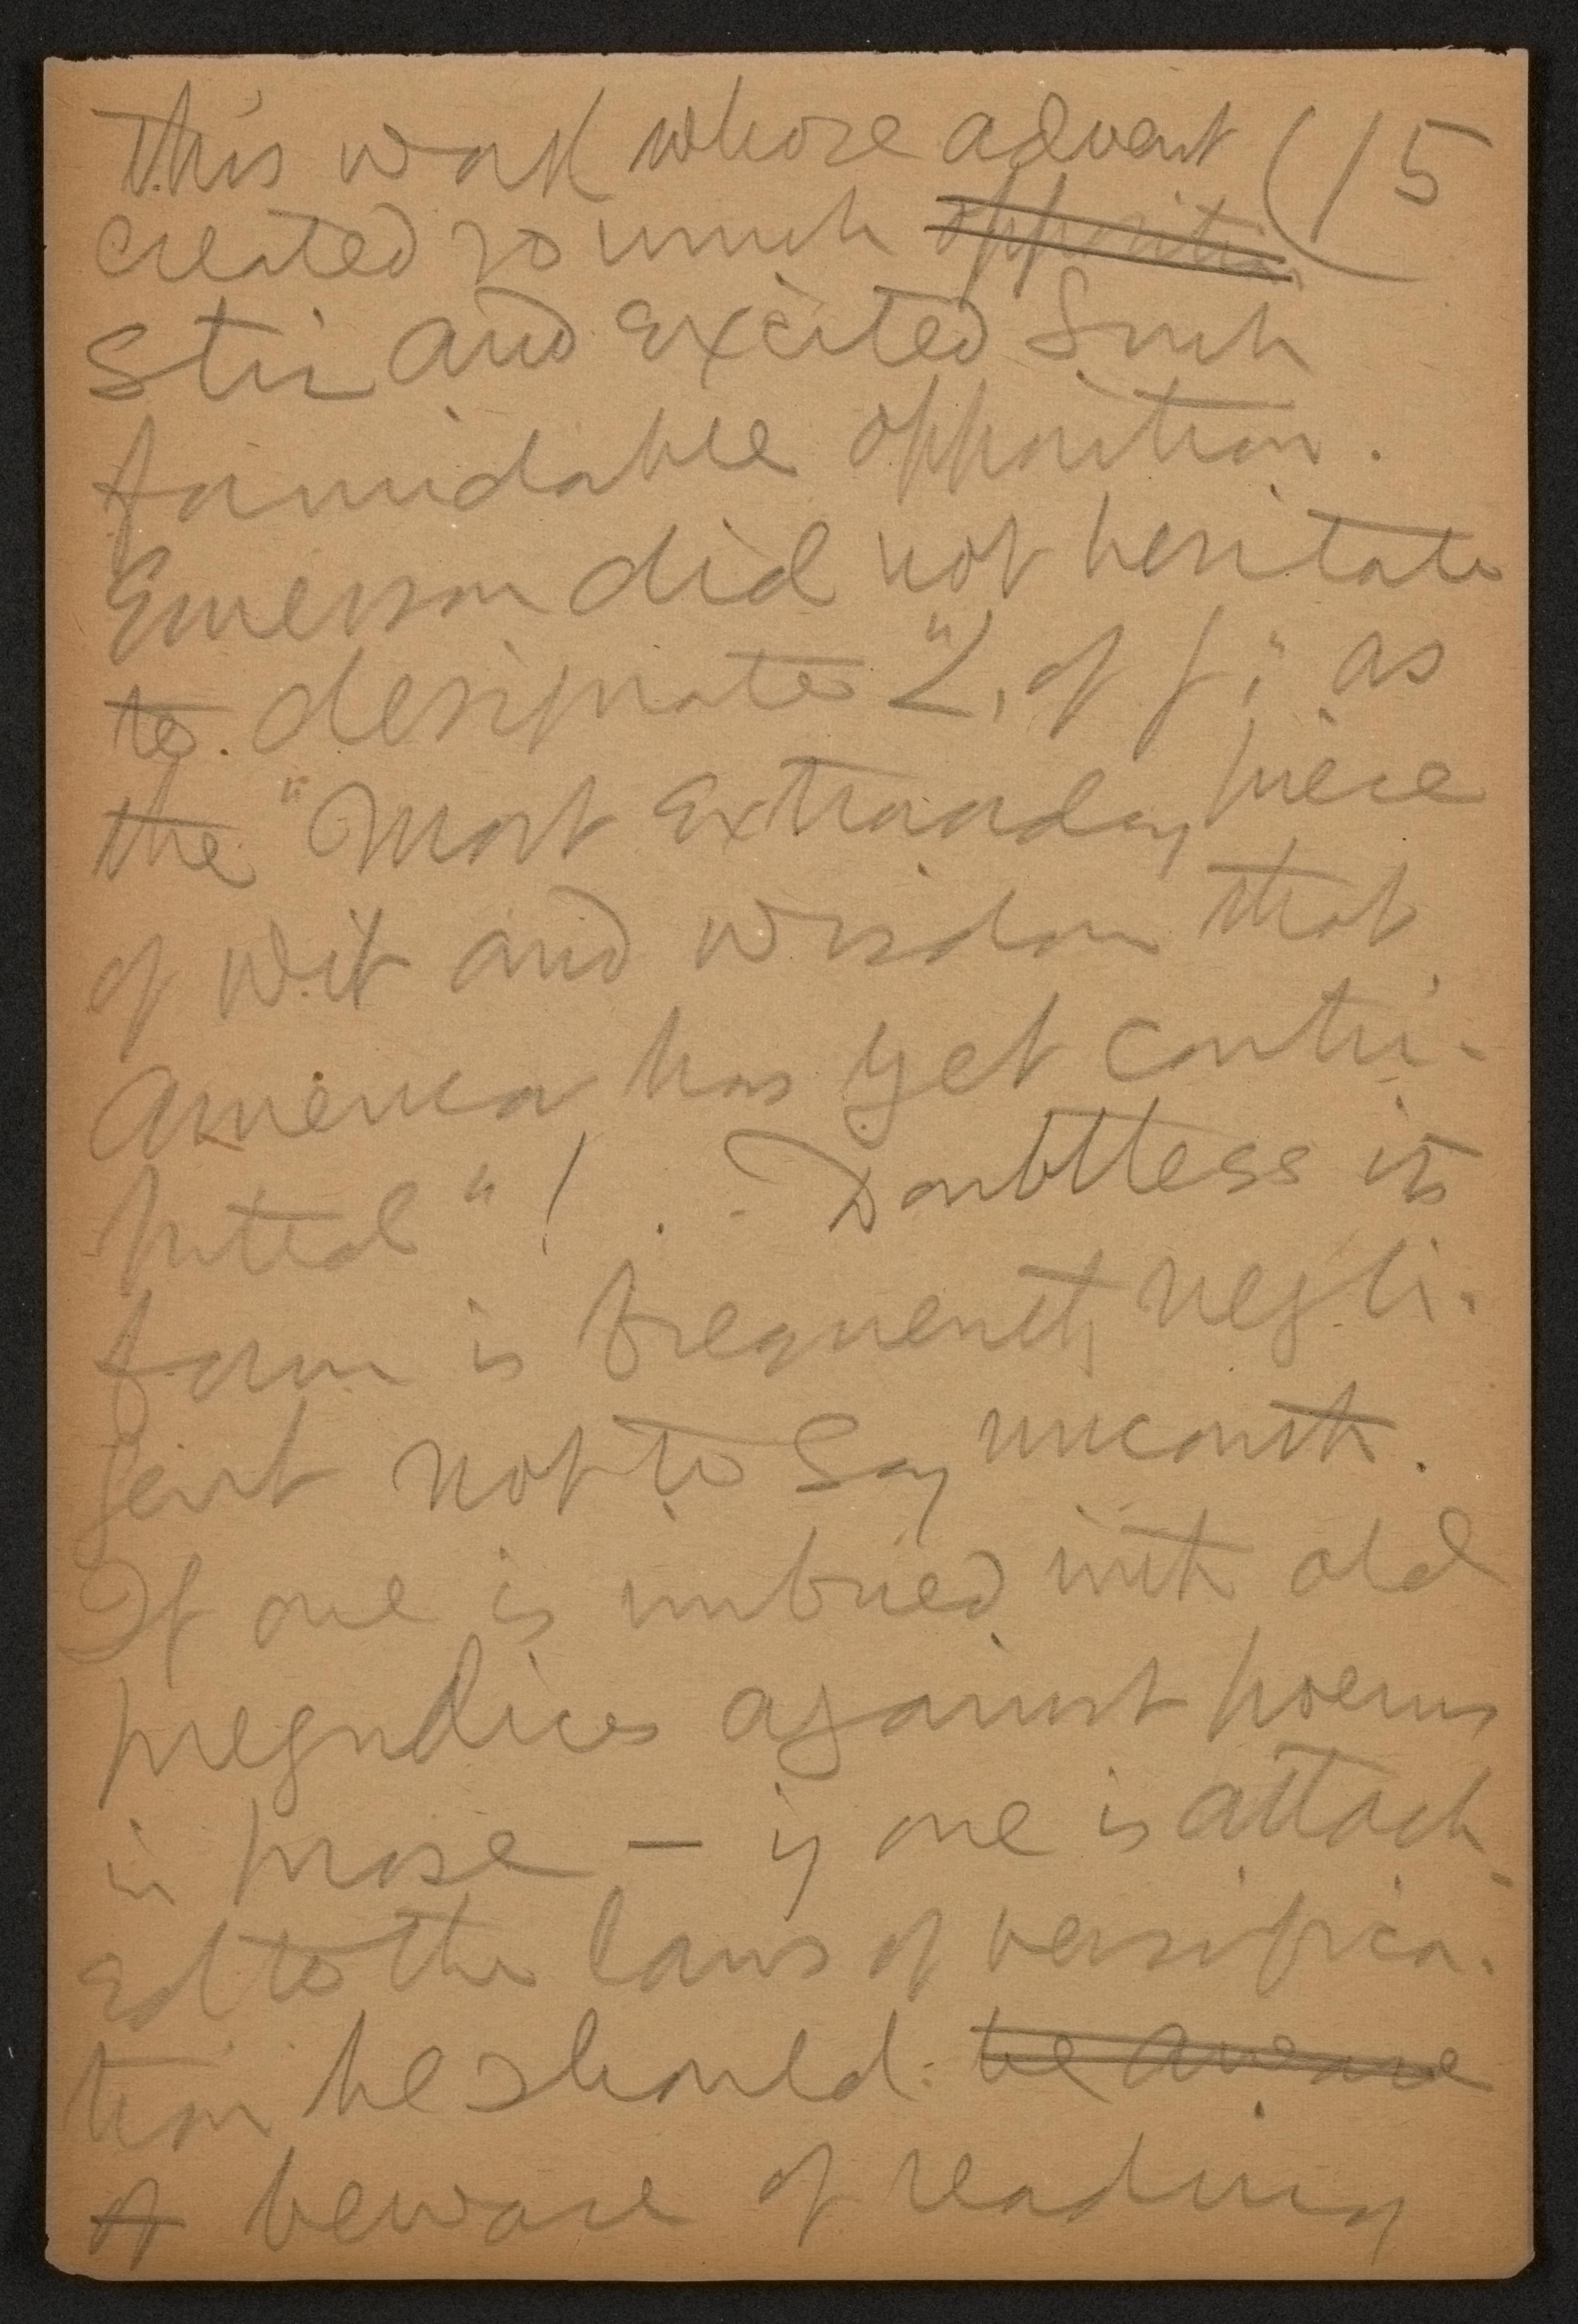 This work whose advent (15
created so much opposition
stir and excited such
formidable opposition.
Emerson did not hesitate
to designate "L. of G." as
the "most extraordinary piece
of wit and wisdom that
America has yet contri-
buted"! . . Doubtless its
form is frequently negli-
gent not to say uncouth.
If one is imbued with old
pregudices against poems
in prose — if one is attach-
ed to the laws of versifica-
tion he should be aware
of beware of reading